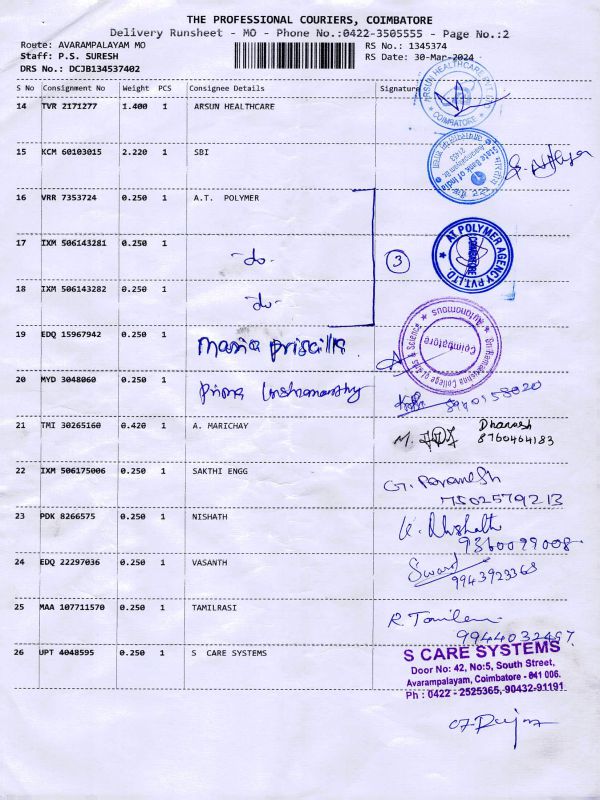 THE PROFESSIONAL COURIERS, COIMBATORE
Delivery Runsheet - MO - Phone No.:0422-3505555 - Page No.:2
Route: AVARAMPALAYAM MO
RS No.: 1345374
Staff: P.S. SURESH
RS Date: 30-Mar-2024
DRS No.: DCJB134537402
S No Consignment No Weight PCS Consignee Details Signature
14 TVR 2171277 1.400 1 ARSUN HEALTHCARE
ARSUN HEALTHCARE PVT LTD
COIMBATORE
15 KCM 60103015 2.220 1 SBI
State Bank of India
16 VRR 7353724 0.250 1 A.T. POLYMER
17 IXM 506143281 0.250 1
-do-
3
AT POLYMER AGENCY PVT.LTD
COIMBATORE
18 IXM 506143282 0.250 1
-do-
19 EDQ 15967942 0.250 1 Maria Priscilla
Sri Ramakrishna College of Arts & Science
Autonomous
Coimbatore
20 MYD 3048060 0.250 1
8940158020
21 TMI 30265160 0.420 1 A. MARICHAY
Dhanesh
8760464183
22 IXM 506175006 0.250 1 SAKTHI ENGG
7502579213
23 PDK 8266575 0.250 1 NISHATH
9360099008
24 EDQ 22297036 0.250 1 VASANTH
9943923368
25 MAA 107711570 0.250 1 TAMILRASI
9944032497
26 UPT 4048595 0.250 1 S CARE SYSTEMS
S CARE SYSTEMS
Door No: 42, No:5, South Street,
Avarampalayam, Coimbatore - 641 006.
Ph : 0422 - 2525365, 90432-91191